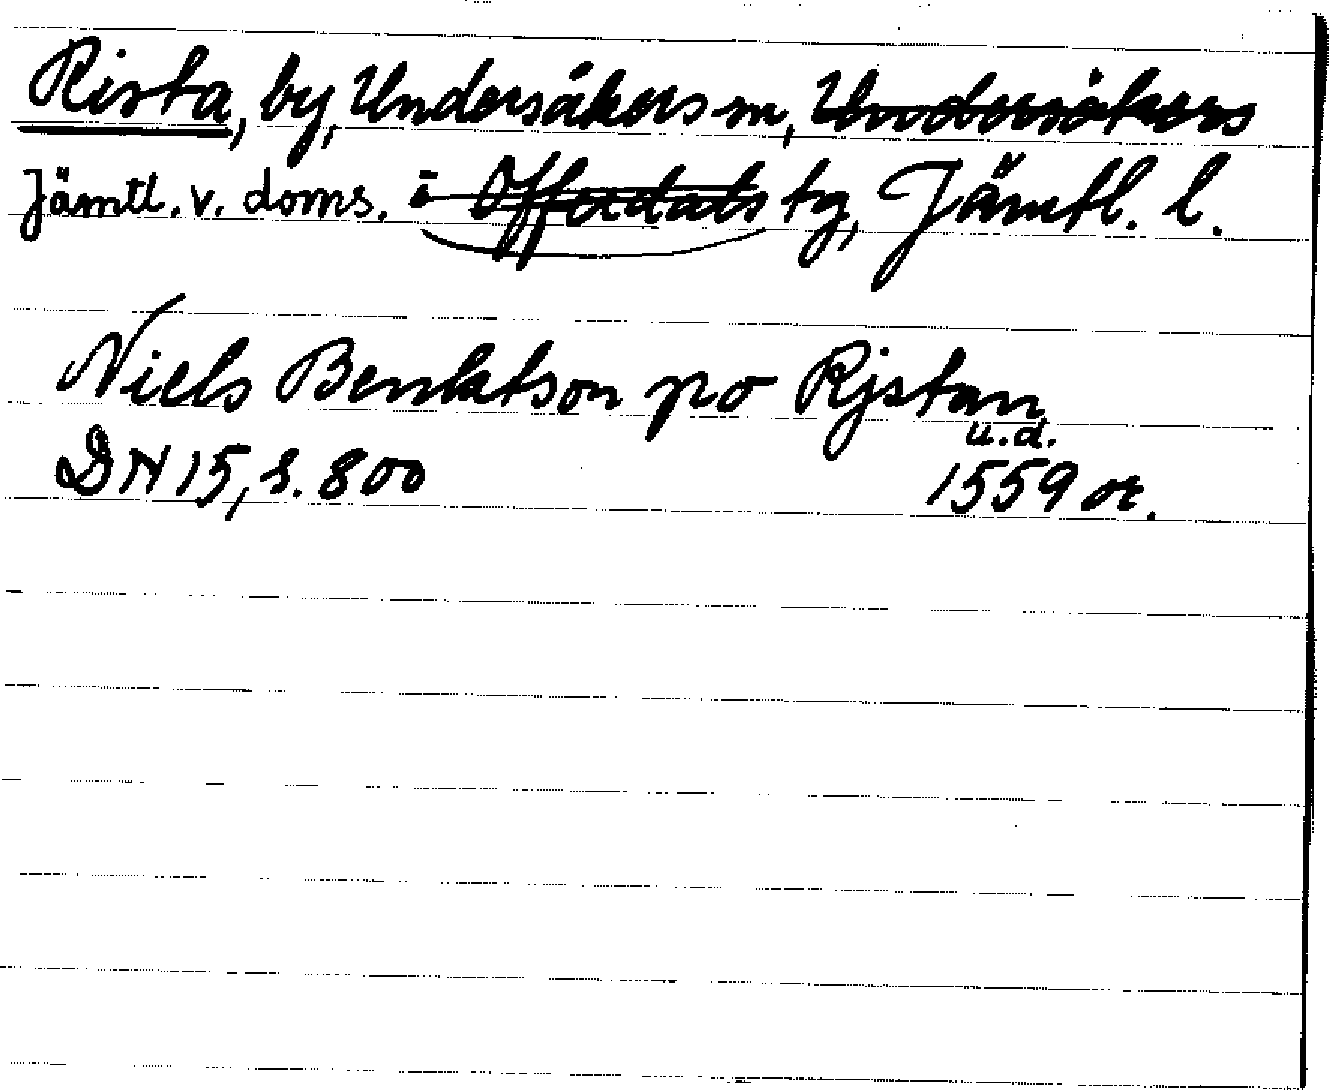 Rista, by, Undersåkers sn, Undersåkers
Jämtl. v. doms. i Offerdals tg, Jämtl. l.
Niels Benktson po Rjstan
u.d.
DN 15, s. 800 1559 or.